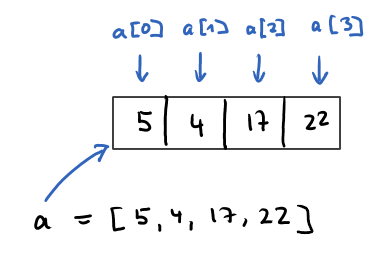 a[0] a[1] a[2] a[3]
5 4 17 22
a = [5, 4, 17, 22]